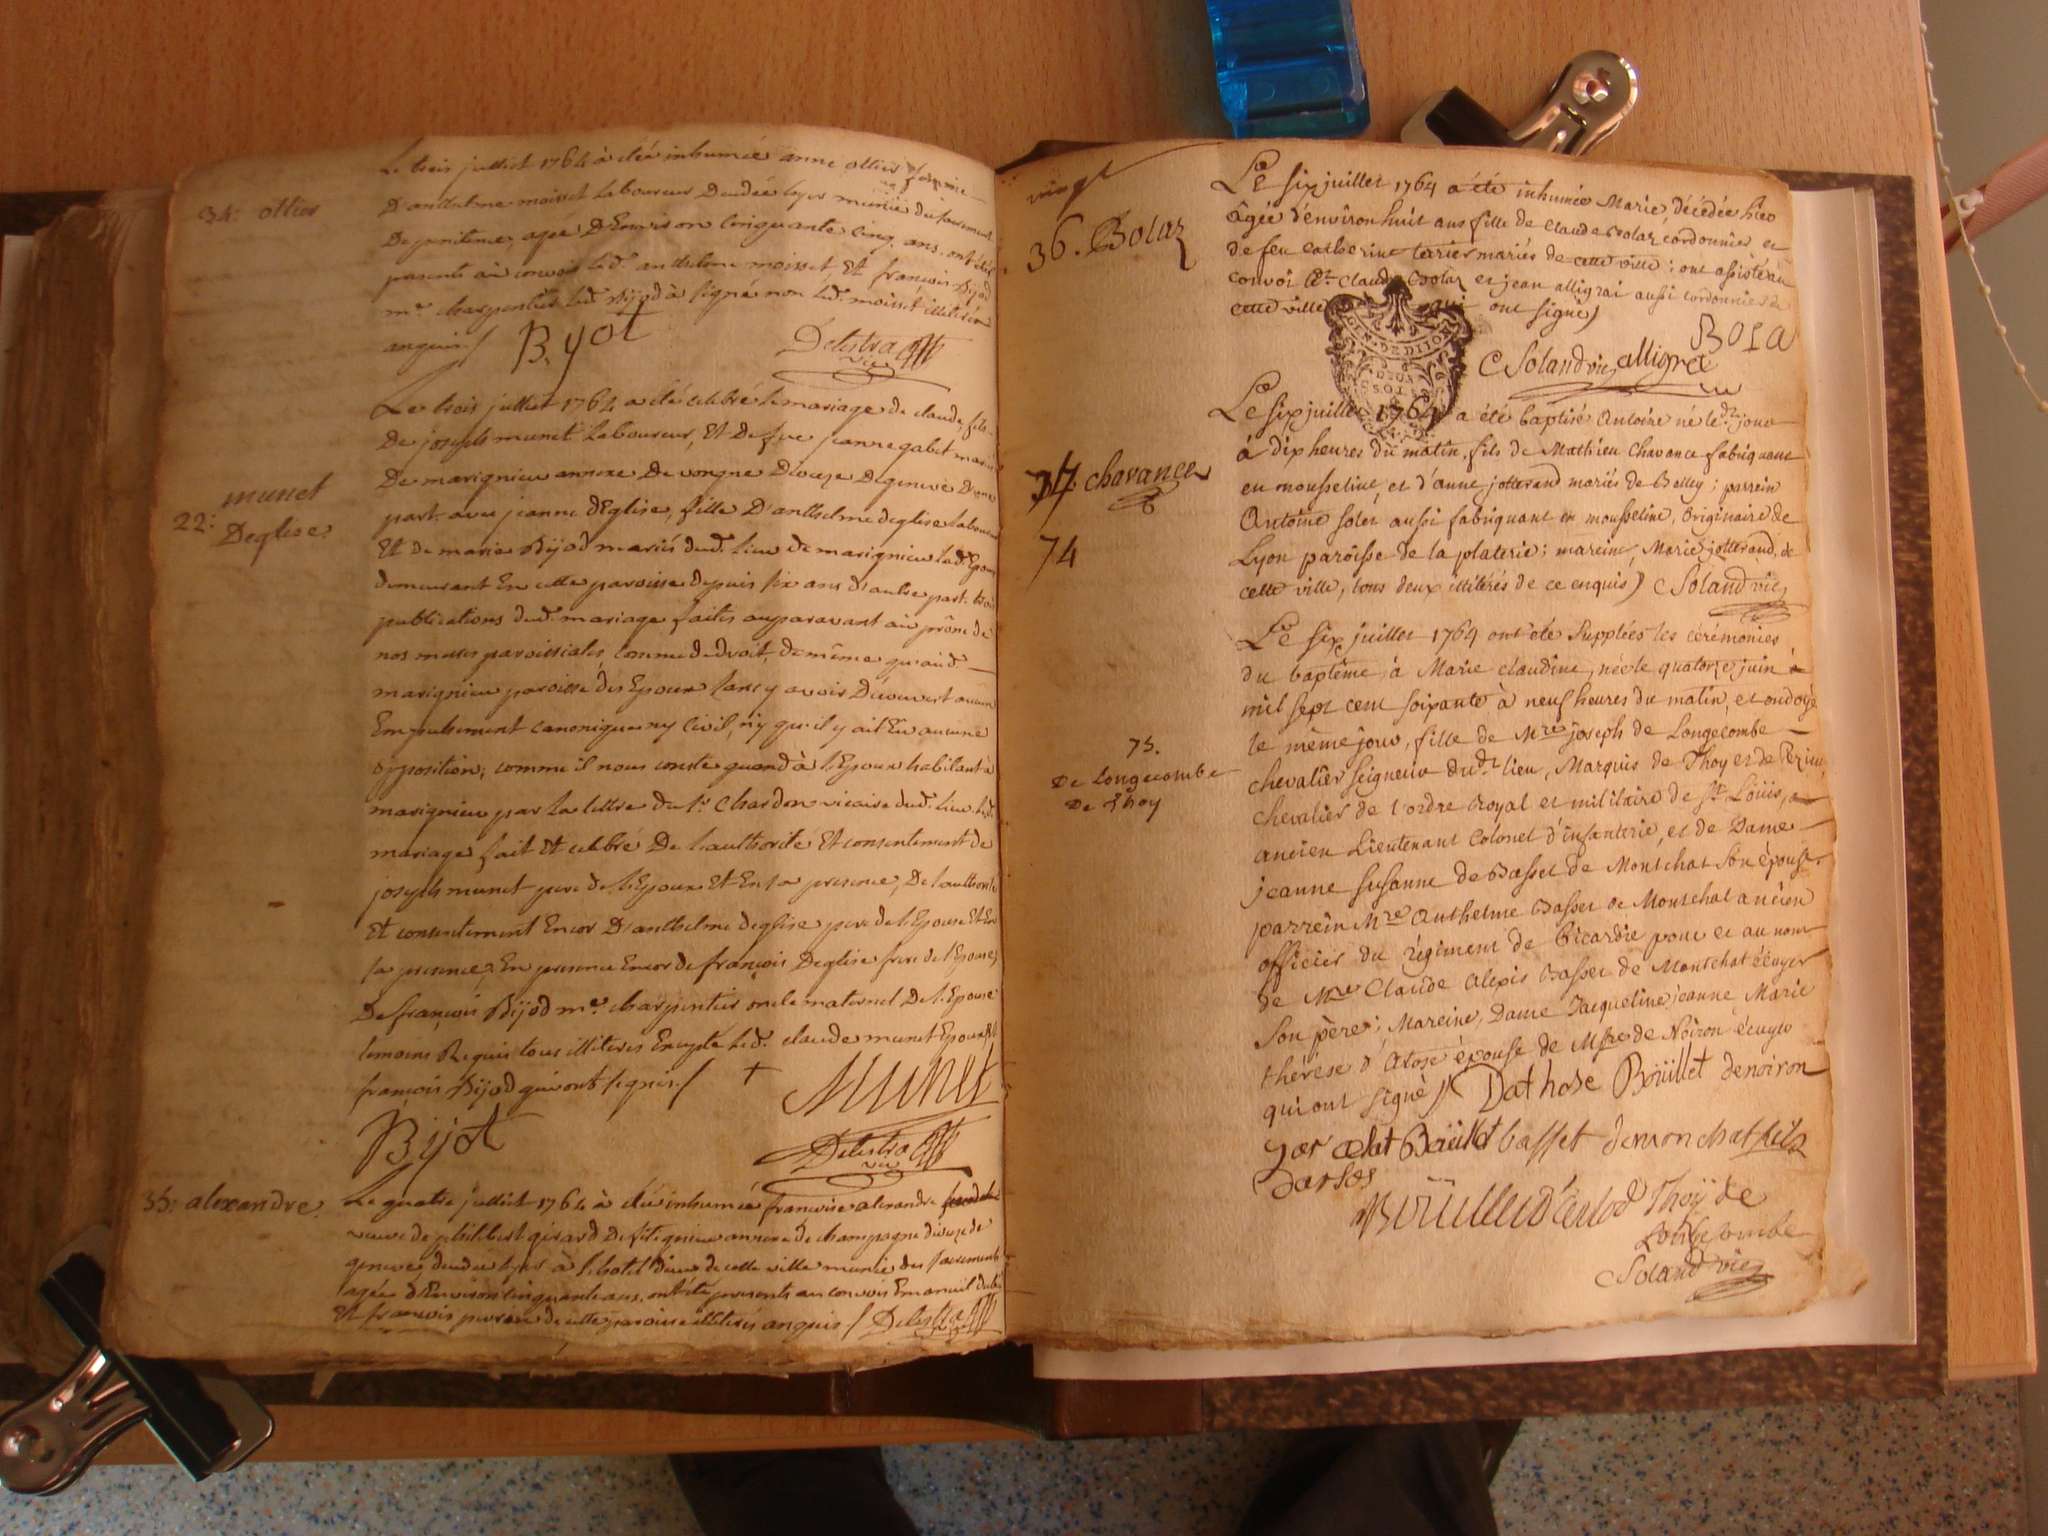 34: ollier
Le trois juillet 1764 à été inhumée anne ollier femme
D'anthelme moisset Laboureur Decedée hyer munie du sacrement
De penitence, agée D'Environ Cinquante Cinq ans. ont été
presents au convois led. anthelme moisset Et françois Bijod
me charpentier led. Bijod à signé non led. moisset illiteré
anquis./ Byot Delestra
vic
munet
22: Deglise
Le trois juillet 1764 a été celebré le mariage de claude, fils
De joseph munet Laboureur, Et De fue jeanne gabet mariés
De marignieu annexe De vongne Dioceze De geneve D'une
part. avec jeanne dEglise, fille D'anthelme deglise Laboureur
Et De marie Bijod mariés dud. lieu de marignieu lad. Epouse
demeurant En cette paroisse depuis six ans d'autre part. trois
publications dud. mariage faites auparavant au prône de
nos messes paroissiales, comme de droit, de même qu'aud.
marignieu paroisse de l'Epoux sans y avoir Découvert aucun
Empechement canonique ny Civil, n'y qu'il y ait Eu aucune
opposition; comme il nous conste quand à l'Epoux habitant à
marignieu par La lettre du Sr. Chardon vicaire dud. lieu led.
mariage fait Et celebré De L'authorité Et consentement de
joseph munet pere de l'Epoux Et En sa presence, De l'authorité
Et consentement Encor D'anthelme deglise pere de l'Epouse Et En
sa presence, En presence Encor de françois Deglise frere de l'Epouse,
De françois Bijod me. charpentier oncle maternel De l'Epouse
temoins Requis tous illiterés Excepté led. claude munet Epoux Et
françois Bijod qui ont signés./ + Munet
Bijot Delestra
vic
35: alexandre.
Le quatre juillet 1764 à été inhumée françoise alexandre
veuve de philibert girard De fitignieu annexe de champagne dioceze de
geneve, decedée hyer à l'hotel Dieu de cette ville munie des sacrements
agée d'Environ cinquante ans, ont été presents au convois Emanuel
Et françois de cette paroisse illiterés anquis./ Delestra
vingt
36. Bolaz
Le six juillet 1764 a été inhumée Marie, décédée hier
âgée d'environ huit ans fille de Claude Bolaz cordonnier et
de feu Catherine mariés de cette ville; ont assisté au
convoi led. Claude Bolaz et jean alligrai aussi cordonnier de
cette ville qui ont signé)
Bola
C Soland vic, alligret
GEN. DE DIJON
DEUX
SOLS
37. chavance
74
Le six juillet 1764 a été baptisé Antoine né led. jour
à dix heures du matin, fils de Mathieu Chavance fabriquant
en mousseline, et d'Anne jotterand mariés de Belley; parrein
Antoine Soler aussi fabriquant en mousseline, originaire de
Lyon paroisse de la platerie; mareine, Marie jotterand, de
cette ville, tous deux illitérés de ce enquis) C Soland vic,
75.
De Longecombe
De Thoy
Le six juillet 1764 ont été Supplées les cérémonies
du baptême, à Marie Claudine, née le quatorze juin
mil sept cent soixante à neuf heures du matin, et ondoyé
le même jour, fille de Mre joseph de Longecombe
chevalier seigneur dudt. lieu, Marquis de Thoy et de
chevalier de l'ordre Royal et militaire de St. Louis,
ancien Lieutenant Colonel d'infanterie, et de Dame
jeanne susanne de Basset de Montchat Son épouse.
parrein Mre Anthelme Basset de Montchat ancien
officier du régiment de Picardie pour et au nom
de Mre Claude Alexis Basset de Montchat écuyer
son père; Mareine, Dame Jacqueline jeanne Marie
thérése d'Arose épouse de Msre de Noiron écuyer
qui ont signé)/ Dathose Boüillet denoiron
Boüillet basset demonchat fils
Darlos
Boüillet Thoÿ de
Longecombe
C Soland vic,